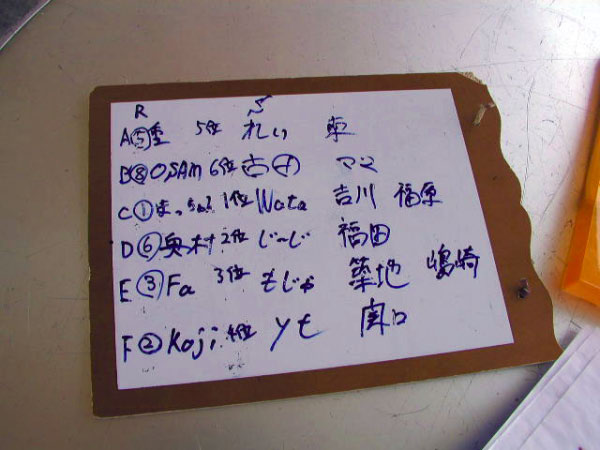 R S
A ⑤ 5位 れい 東
B ⑧ OSAM 6位 古田 ママ
C ① まっちゃん 1位 Wata 吉川 福原
D ⑥ 奥村 2位 じ〜じ 福田
E ③ Fa 3位 もじゃ 築地 嶋崎
F ② Koji 4位 yt 関口